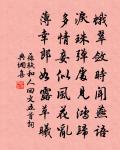 蛾翠斂時聞燕語
淚珠彈處見鴻歸
多情妾似風花亂
薄倖郎如露草晞
蘇軾和人回文五首詞
典網